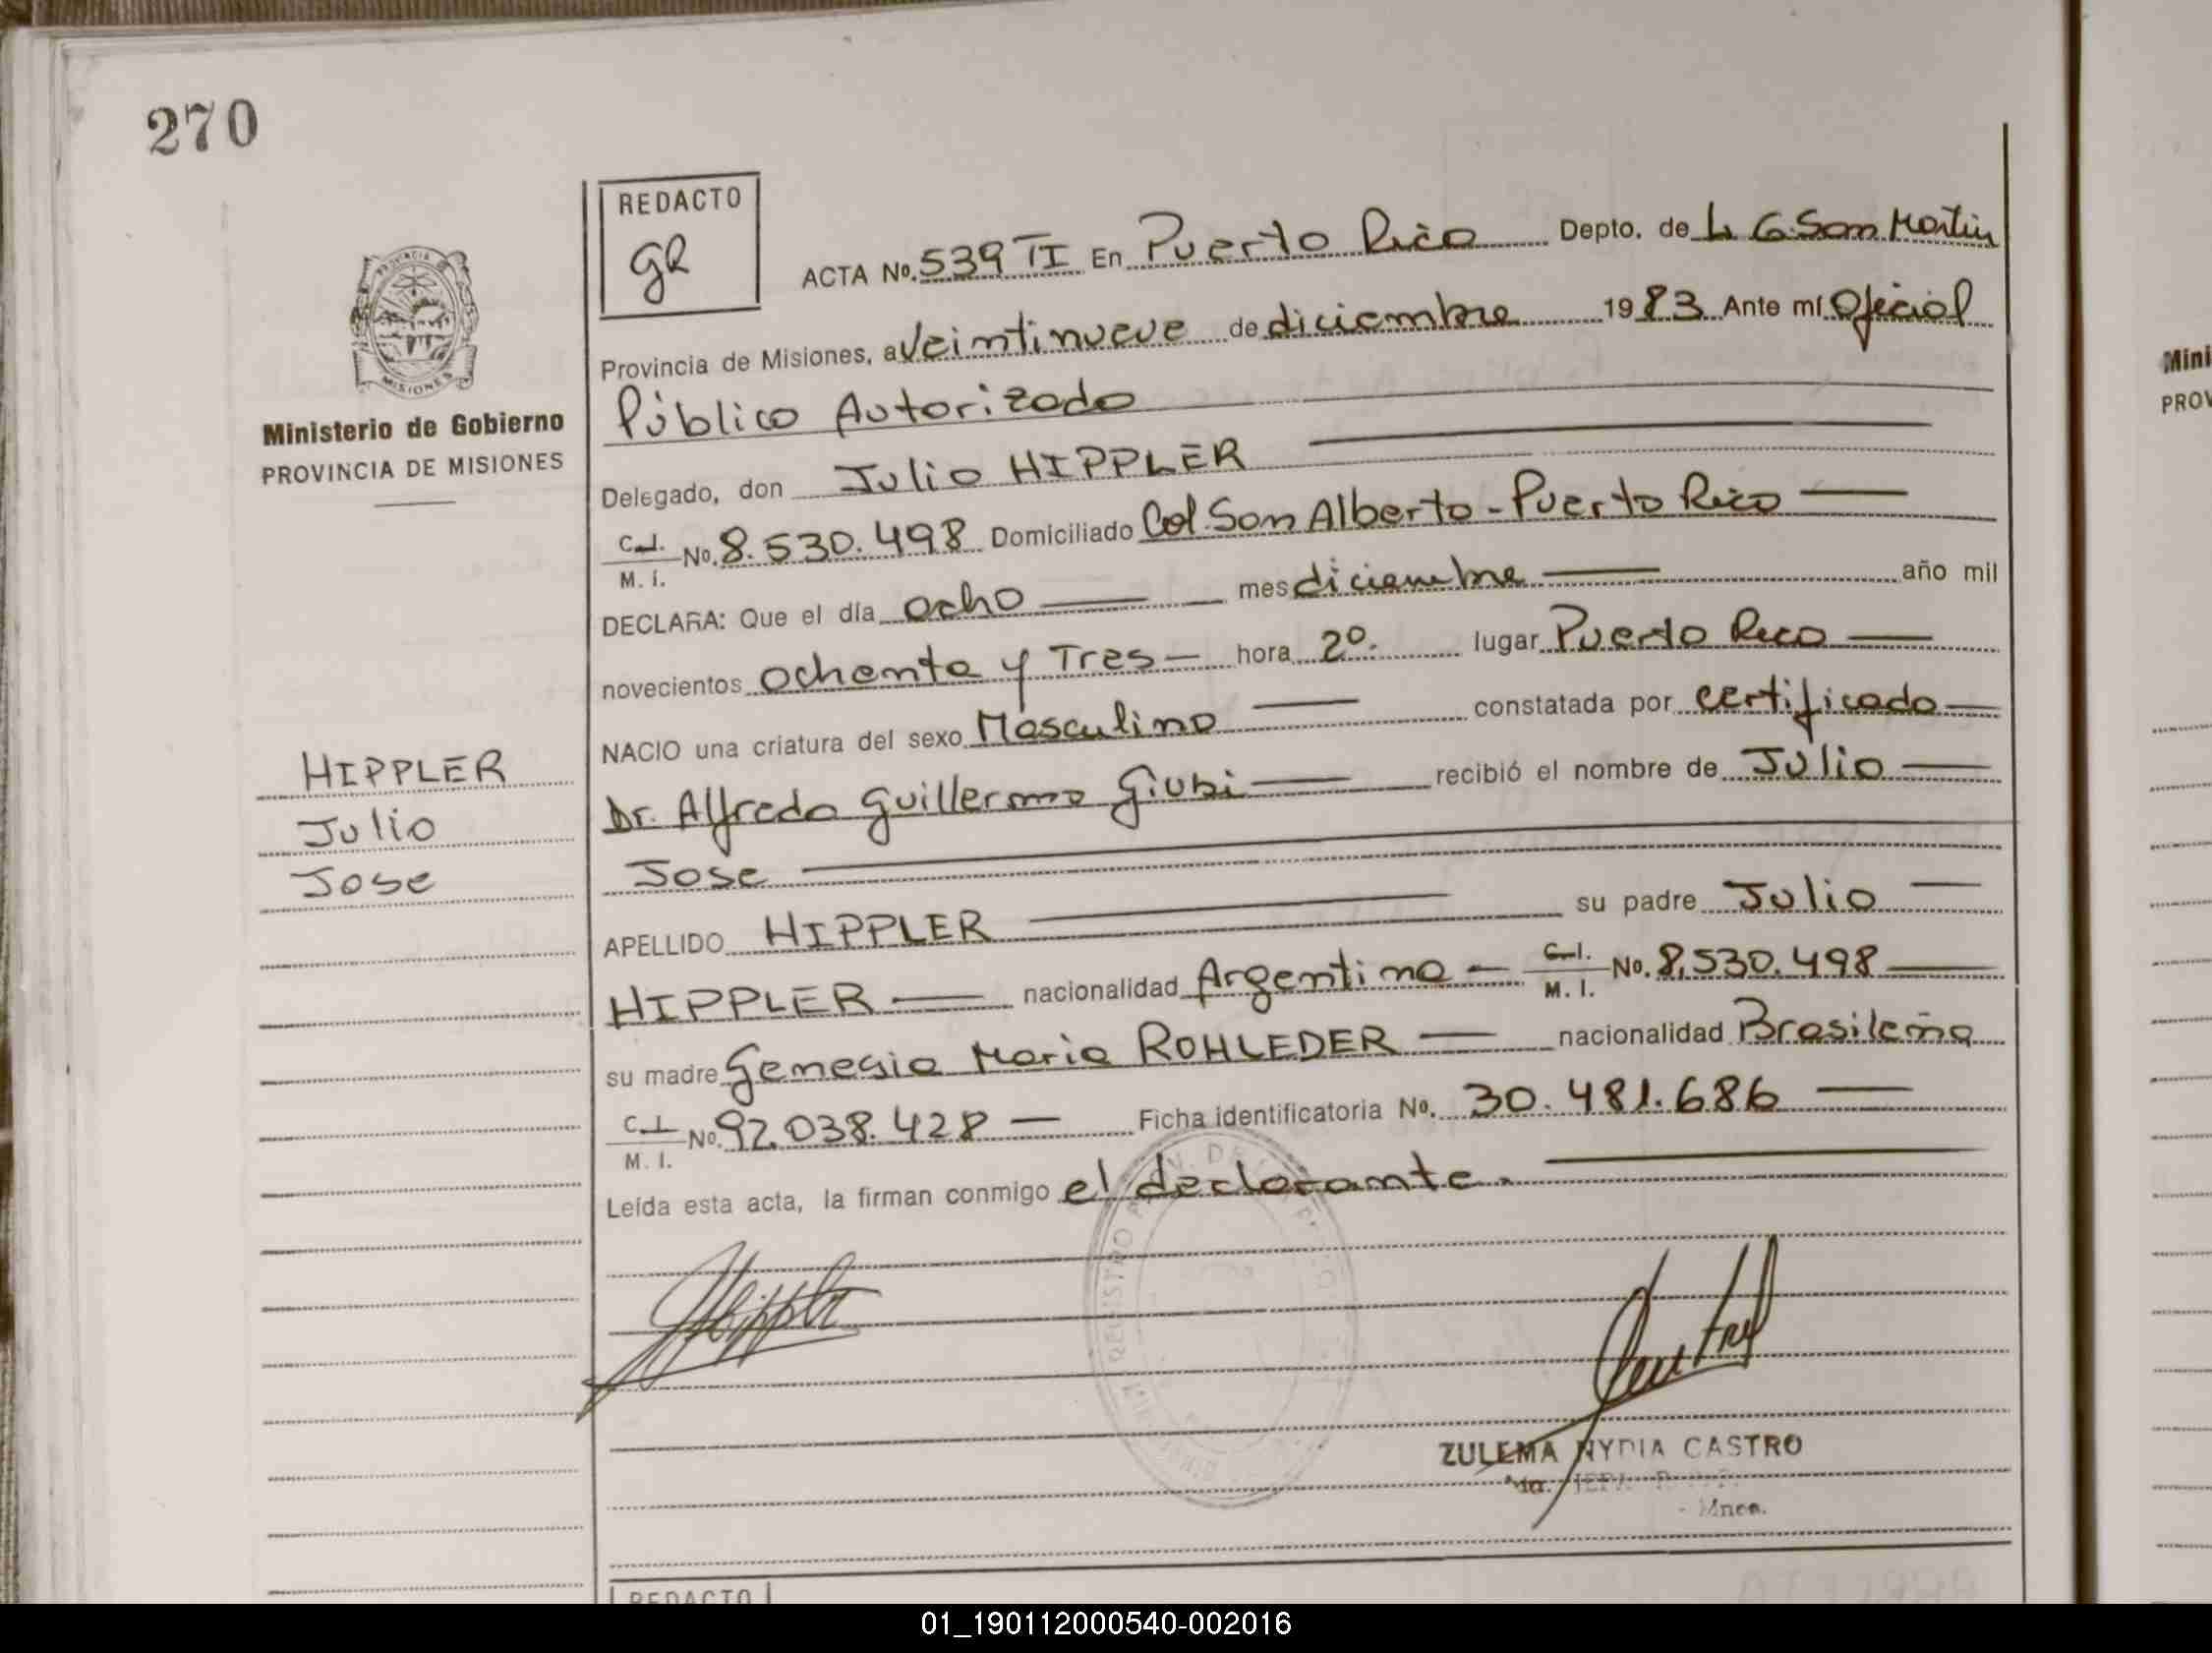 270
REDACTO
gR
ACTA No. 539 TI En Puerto Rico Depto. de L. G. San Martin
Provincia de Misiones, a veintinueve de diciembre 1983 Ante mí Oficial
Público Autorizado
Delegado, don Julio HIPPLER
C.I. No. 8.530.498 Domiciliado Col. San Alberto - Puerto Rico
M. I.
DECLARA: Que el día ocho mes diciembre año mil
novecientos ochenta y Tres hora 20. lugar Puerto Rico
NACIO una criatura del sexo Masculino constatada por certificado
Dr. Alfredo Guillermo Giubi recibió el nombre de Julio
Jose
APELLIDO HIPPLER su padre Julio
HIPPLER nacionalidad Argentina C.I. No. 8.530.498
M. I.
su madre Genesia Maria ROHLEDER nacionalidad Brasileña
C.I. No. 92.038.428 Ficha identificatoria No. 30.481.686
M. I.
Leída esta acta, la firman conmigo el declarante.
Hippler
ZULEMA NYDIA CASTRO
PROVINCIA
MISIONES
Ministerio de Gobierno
PROVINCIA DE MISIONES
HIPPLER
Julio
Jose
REDACTO
Mini
PROV
01_190112000540-002016